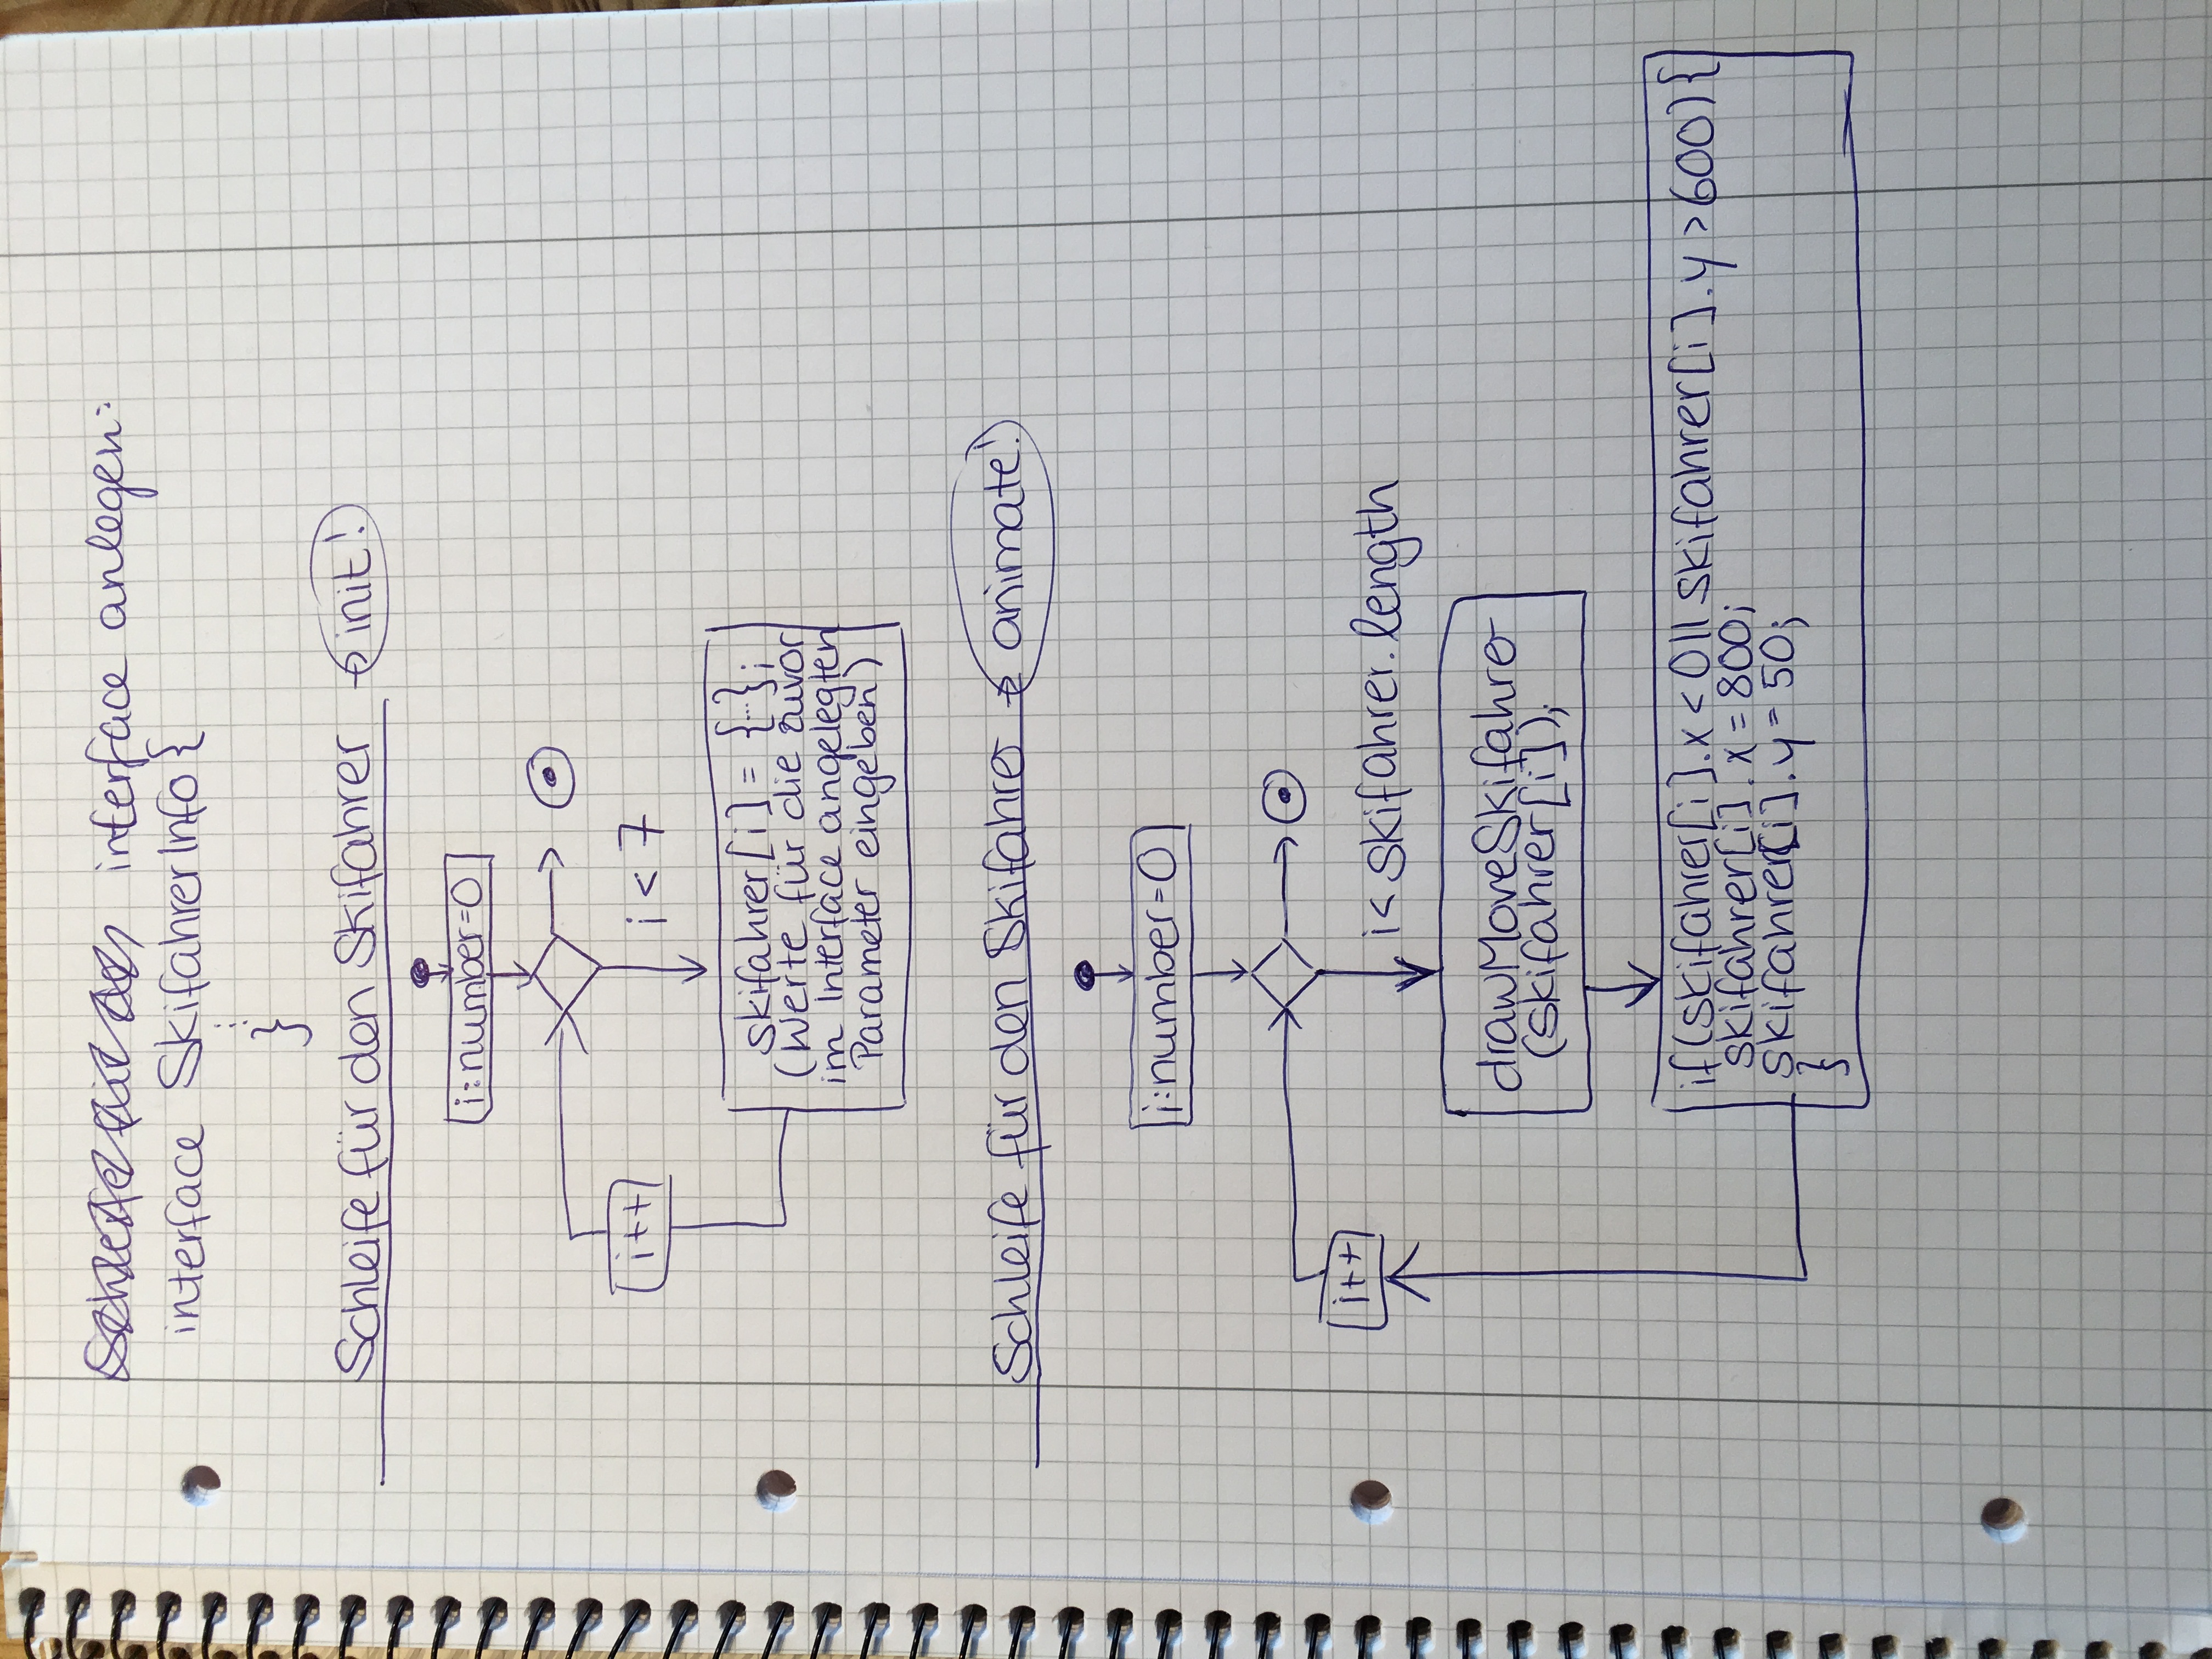 Schleife für den interface anlegen:
interface SkifahrerInfo {
⋮
}
Schleife für den Skifahrer → init!
i:number=0
i++
i < 7
skifahrer[i] = {...};
(Werte für die zuvor
im Interface angelegten
Parameter eingeben)
Schleife für den Skifahrer → animate!
i:number=0
i++
i< skifahrer.length
drawMoveSkifahrer
(skifahrer[i]);
if(skifahrer[i].x < 0 || skifahrer[i].y > 600) {
skifahrer[i].x = 800;
skifahrer[i].y = 50;
}